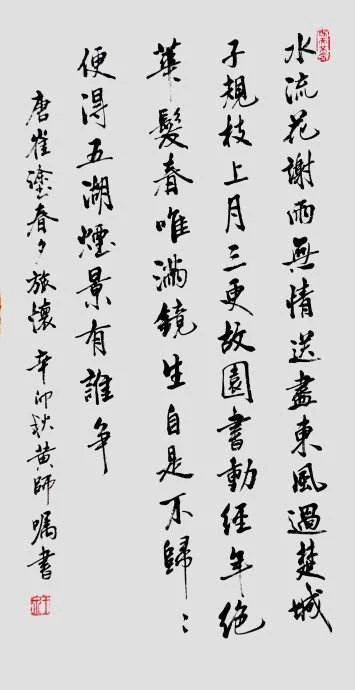 水流花謝兩無情送盡東風過楚城
子規枝上月三更故園書動經年絕
華髮春唯滿鏡生自是不歸〻
便得五湖煙景有誰争
唐崔塗春夕旅懷 辛卯秋黃師囑書